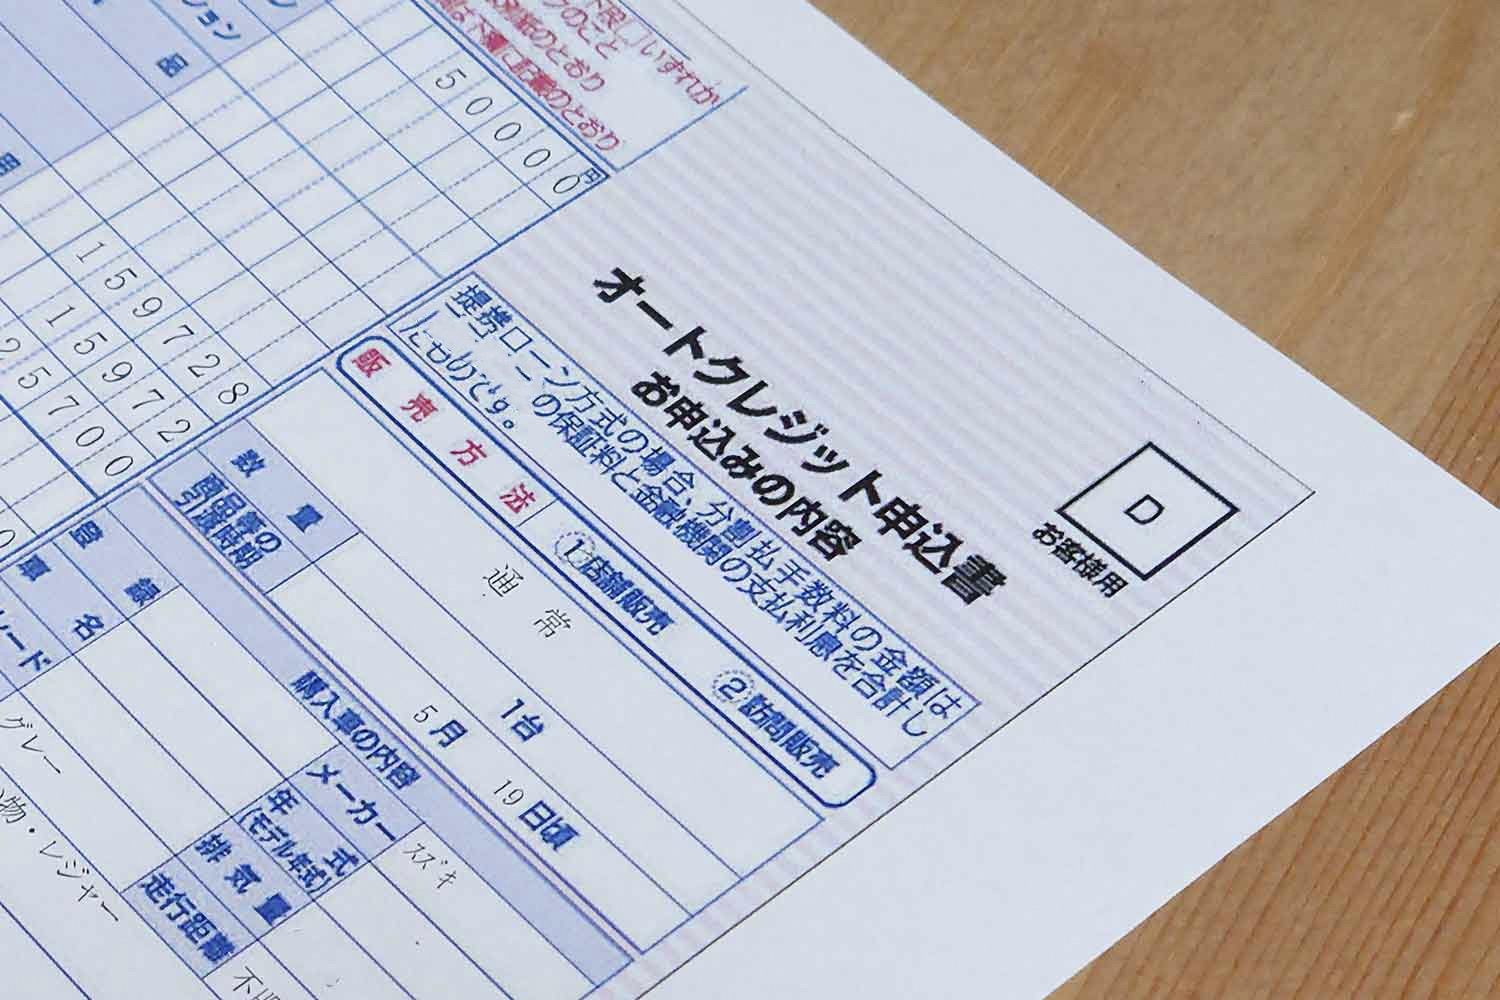 D
お客様用
オートクレジット申込書
お申込みの内容
提携ローン方式の場合、分割払手数料の金額は
の保証料と金融機関の支払利息を合計し
たものです。
販売方法
①店舗販売
②訪問販売
通常
数量
1台
商品等の
引渡時期
5月
19日頃
購入車の内容
メーカー
スズキ
年式
(モデル年式)
排気量
走行距離
いずれか
のこと
のとおり
は下欄に記載のとおり
5000円
159728
15972
25700
グレー
物・レジャー